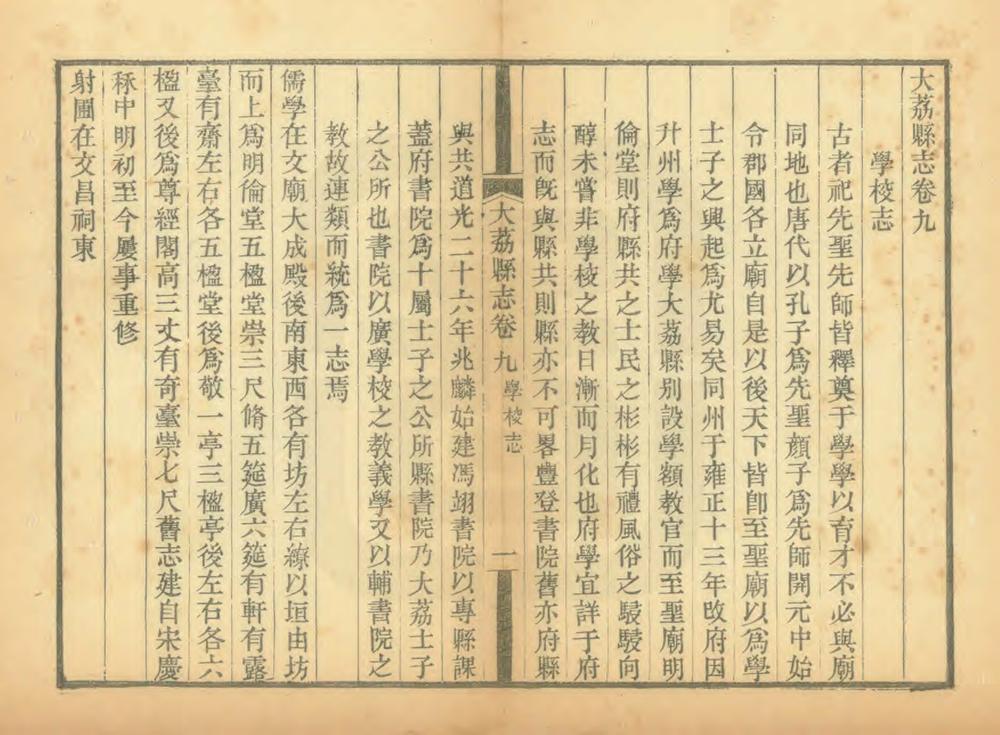 大荔縣志卷九
學校志
古者祀先聖先師皆釋奠于學學以育才不必與廟
同地也唐代以孔子爲先聖顏子爲先師開元中始
令郡國各立廟自是以後天下皆卽至聖廟以爲學
士子之興起爲尤易矣同州于雍正十三年改府因
升州學爲府學大荔縣别設學額教官而至聖廟明
倫堂則府縣共之士民之彬彬有禮風俗之駸駸向
醇未嘗非學校之教日漸而月化也府學宜詳于府
志而旣與縣共則縣亦不可畧豐登書院舊亦府縣
大荔縣志卷九 學校志 一
與共道光二十六年兆麟始建馮翊書院以專縣課
蓋府書院爲十屬士子之公所縣書院乃大荔士子
之公所也書院以廣學校之教義學又以輔書院之
教故連類而統爲一志焉
儒學在文廟大成殿後南東西各有坊左右繚以垣由坊
而上爲明倫堂五楹堂崇三尺脩五筵廣六筵有軒有露
臺有齋左右各五楹堂後爲敬一亭三楹亭後左右各六
楹又後爲尊經閣高三丈有奇臺崇七尺舊志建自宋慶
秝中明初至今屢事重修
射圃在文昌祠東